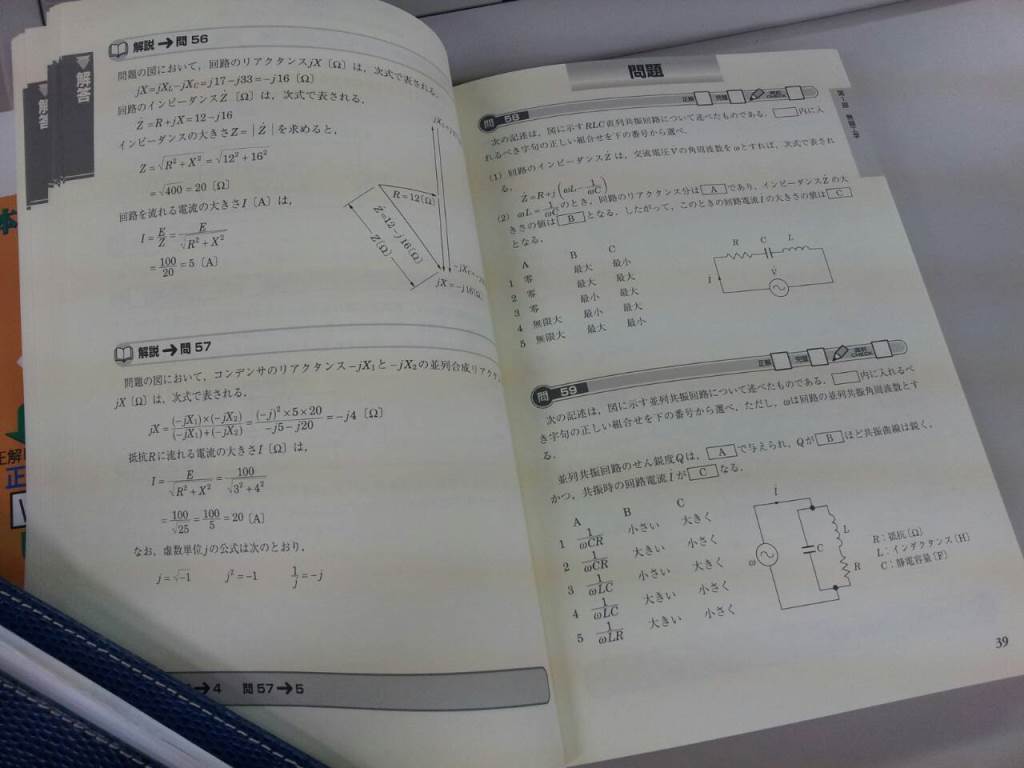 解答
解説→問 56
問題の図において，回路のリアクタンスjX〔Ω〕は，次式で表される．
jX=jXL−jXC=j17−j33=−j16〔Ω〕
回路のインピーダンスŻ〔Ω〕は，次式で表される．
Ż=R+jX=12−j16
インピーダンスの大きさZ=|Ż|を求めると，
Z=√R²+X²=√12²+16²
=√400=20〔Ω〕
回路を流れる電流の大きさI〔A〕は，
I=E/Z=E/√R²+X²
=100/20=5〔A〕
R=12〔Ω〕
Ż=12−j16〔Ω〕
Z〔Ω〕
jX=−j16〔Ω〕
解説→問 57
問題の図において，コンデンサのリアクタンス−jX1と−jX2の並列合成リアクタン
jX〔Ω〕は，次式で表される．
jX=(−jX1)×(−jX2)/(−jX1)+(−jX2)=(−j)²×5×20/−j5−j20=−j4〔Ω〕
抵抗Rに流れる電流の大きさI〔A〕は，
I=E/√R²+X²=100/√3²+4²
=100/√25=100/5=20〔A〕
なお，虚数単位jの公式は次のとおり．
j=√−1 j²=−1 1/j=−j
→4 問57→5
問題
問 58
正解 完璧 直前CHECK
次の記述は，図に示すRLC直列共振回路について述べたものである．□内に入
れるべき字句の正しい組合せを下の番号から選べ．
(1) 回路のインピーダンスŻは，交流電圧V̇の角周波数をωとすれば，次式で表され
る．
Ż=R+j(ωL−1/ωC)
(2) ωL=1/ωCのとき，回路のリアクタンス分は A であり，インピーダンスŻの大
きさの値は B となる．したがって，このときの回路電流İの大きさの値は C
となる．
A B C
1 零 最大 最小
2 零 最大 最大
3 零 最小 最大
4 無限大 最小 最大
5 無限大 最大 最小
R C L
İ
V̇
問 59
正解 完璧 直前CHECK
次の記述は，図に示す並列共振回路について述べたものである．□内に入れるべ
き字句の正しい組合せを下の番号から選べ．ただし，ωは回路の並列共振角周波数とす
る．
並列共振回路のせん鋭度Qは， A で与えられ，Qが B ほど共振曲線は鋭く，
かつ，共振時の回路電流İが C なる．
A B C
1 1/ωCR 小さい 大きく
2 1/ωCR 大きい 小さく
3 1/ωLC 小さい 大きく
4 1/ωLC 大きい 小さく
5 1/ωLR 大きい 小さく
İ
ω
C
L
R
R：抵抗〔Ω〕
L：インダクタンス〔H〕
C：静電容量〔F〕
39